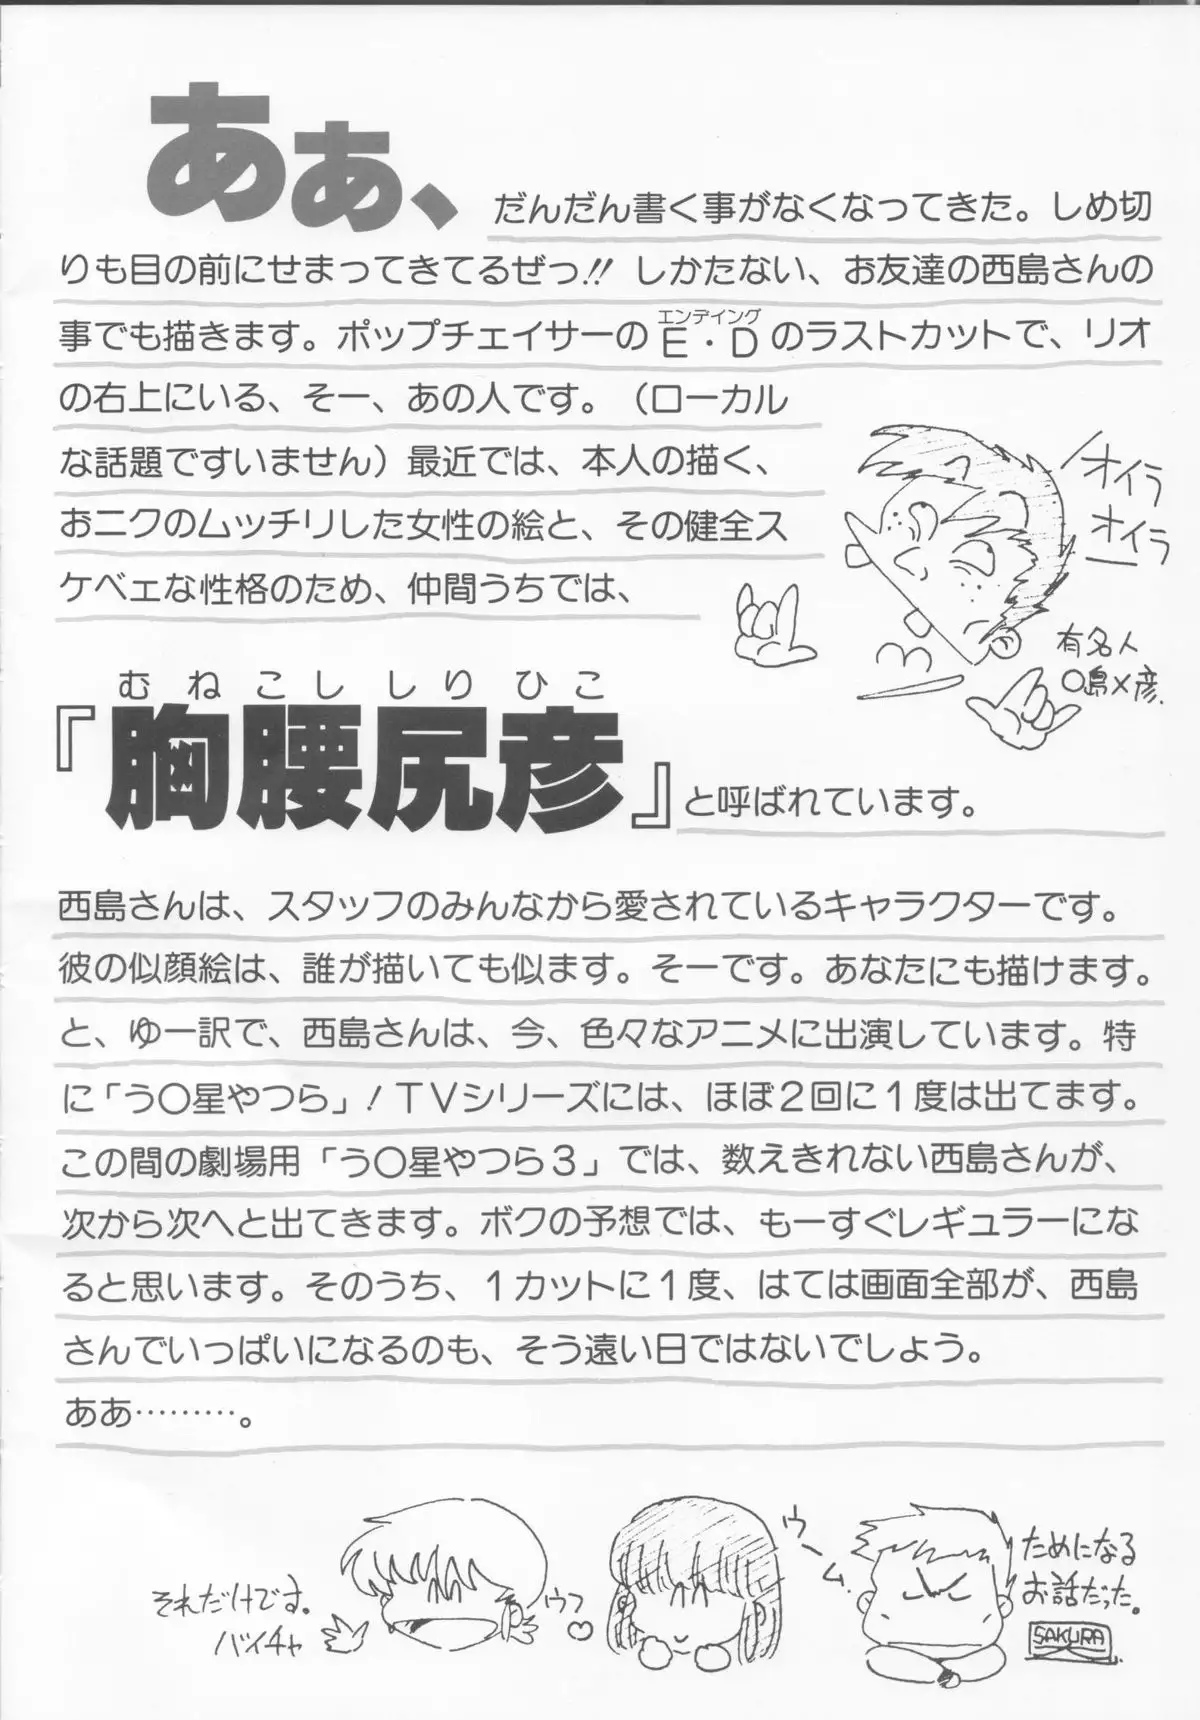 あぁ、だんだん書く事がなくなってきた。しめ切
りも目の前にせまってきてるぜっ!! しかたない、お友達の西島さんの
エンディング
事でも描きます。ポップチェイサーのE・Dのラストカットで、リオ
の右上にいる、そー、あの人です。（ローカル
な話題ですいません）最近では、本人の描く、
おニクのムッチリした女性の絵と、その健全ス
ケベェな性格のため、仲間うちでは、
オイラ
オイラ
有名人
〇島×彦.
むねこししりひこ
『胸腰尻彦』と呼ばれています。
西島さんは、スタッフのみんなから愛されているキャラクターです。
彼の似顔絵は、誰が描いても似ます。そーです。あなたにも描けます。
と、ゆー訳で、西島さんは、今、色々なアニメに出演しています。特
に「う〇星やつら」! TVシリーズには、ほぼ2回に1度は出てます。
この間の劇場用「う〇星やつら3」では、数えきれない西島さんが、
次から次へと出てきます。ボクの予想では、もーすぐレギュラーにな
ると思います。そのうち、1カットに1度、はては画面全部が、西島
さんでいっぱいになるのも、そう遠い日ではないでしょう。
ああ………。
それだけです。
バイチャ
ウフ♡
ウーム.
ためになる
お話だった。
SAKURA